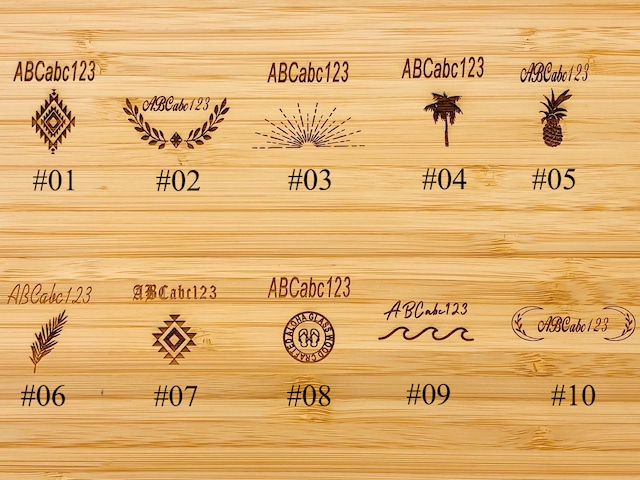 ABCabc123
ABCabc123
ABCabc123
ABCabc123
ABCabc123
#01
#02
#03
#04
#05
ABCabc123
ABCabc123
ABCabc123
ABCabc123
ABCabc123
ALOHA GLASS WOOD CRAFTED
#06
#07
#08
#09
#10